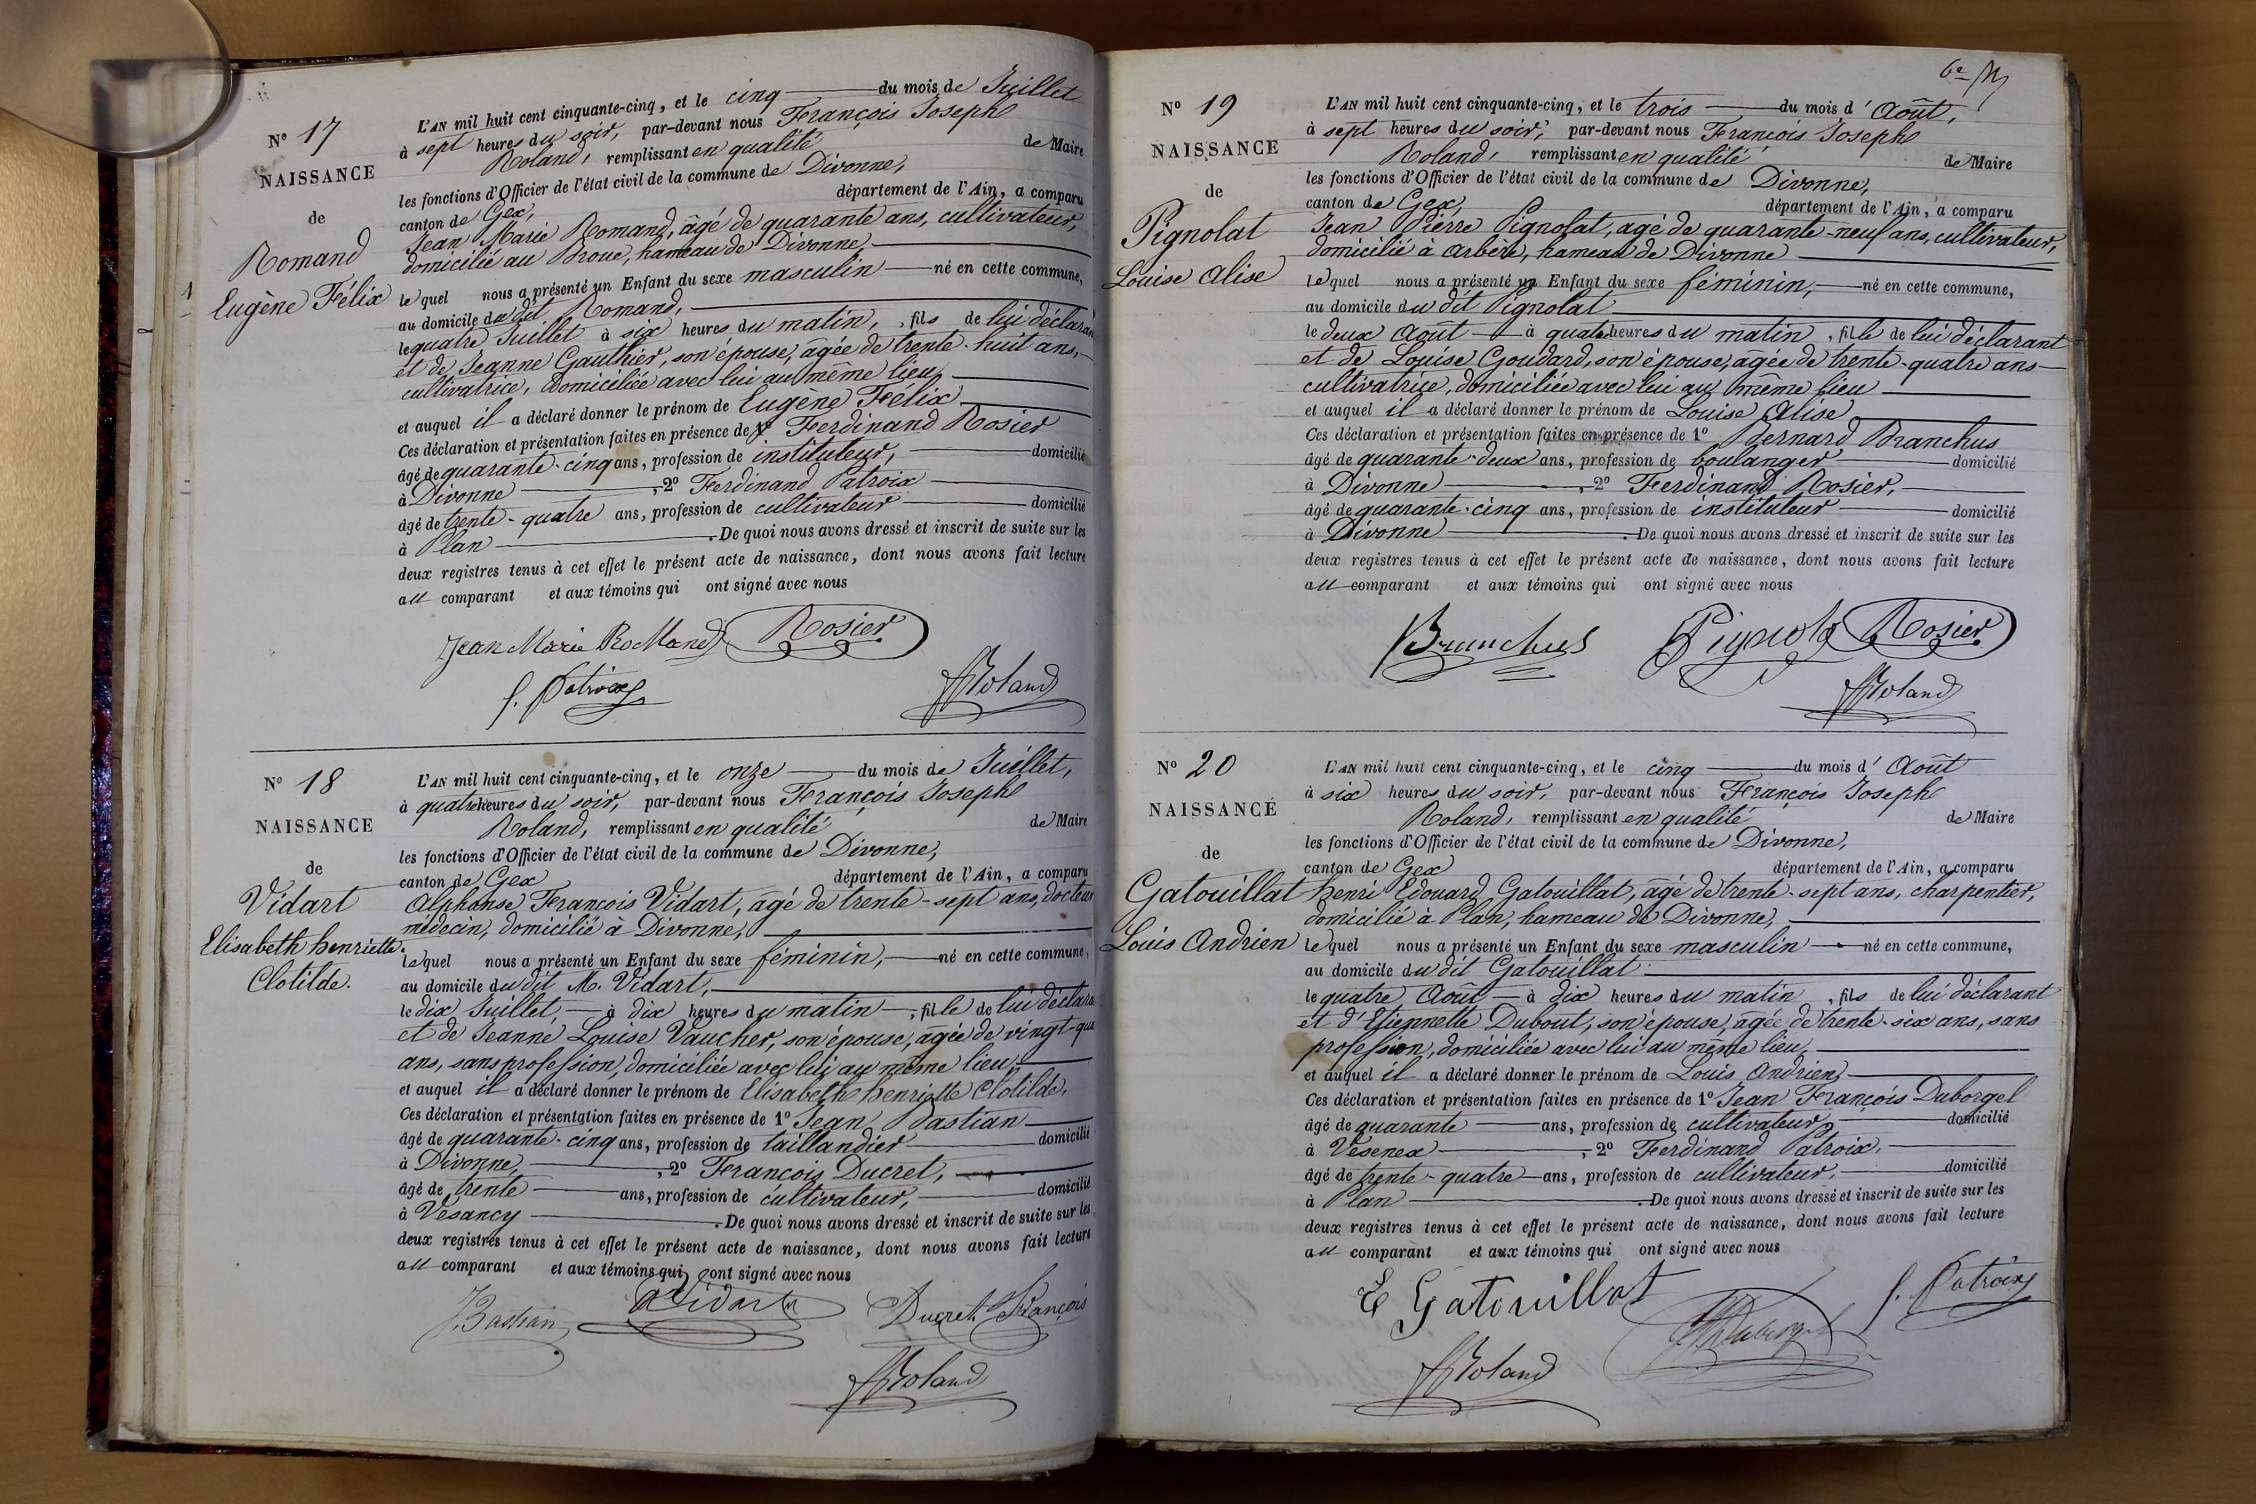 N° 17
NAISSANCE
de
Romand
Eugène Félix
L'AN mil huit cent cinquante-cinq, et le cinq du mois de Juillet
à sept heures du soir, par-devant nous François Joseph
Roland, remplissant en qualité de Maire
les fonctions d'Officier de l'état civil de la commune de Divonne,
canton de Gex, département de l'Ain, a comparu
Jean Marie Romand, âgé de quarante ans, cultivateur,
domicilié au Broue, hameau de Divonne,
lequel nous a présenté un Enfant du sexe masculin né en cette commune,
au domicile du dit Romand,
le quatre Juillet à six heures du matin, , fils de lui déclarant
et de Jeanne Gauthier, son épouse, âgée de trente-huit ans,
cultivatrice, domiciliée avec lui au même lieu,
et auquel il a déclaré donner le prénom de Eugène Félix
Ces déclaration et présentation faites en présence de 1° Ferdinand Rosier
âgé de quarante-cinq ans, profession de instituteur, domicilié
à Divonne , 2° Ferdinand Patroix
âgé de trente-quatre ans, profession de cultivateur domicilié
à Plan . De quoi nous avons dressé et inscrit de suite sur les
deux registres tenus à cet effet le présent acte de naissance, dont nous avons fait lecture
au comparant et aux témoins qui ont signé avec nous
Jean Marie RoMand Rosier
f. Patroix Roland
N° 18
NAISSANCE
de
Vidart
Elisabeth henriette
Clotilde.
L'AN mil huit cent cinquante-cinq, et le onze du mois de Juillet,
à quatre heures du soir, par-devant nous François Joseph
Roland, remplissant en qualité de Maire
les fonctions d'Officier de l'état civil de la commune de Divonne,
canton de Gex département de l'Ain, a comparu
Alphonse François Vidart, âgé de trente-sept ans, docteur
médecin, domicilié à Divonne,
lequel nous a présenté un Enfant du sexe féminin, né en cette commune,
au domicile du dit M. Vidart,
le dix Juillet, à dix heures du matin , fille de lui déclara
et de Jeanne Louise Vaucher, son épouse, âgée de vingt-qua
ans, sans profession, domiciliée avec lui au même lieu,
et auquel il a déclaré donner le prénom de Elisabeth henriette Clotilde.
Ces déclaration et présentation faites en présence de 1° Jean Bastian
âgé de quarante-cinq ans, profession de taillandier domicilié
à Divonne, , 2° François Ducret,
âgé de trente ans, profession de cultivateur, domicilié
à Vésancy . De quoi nous avons dressé et inscrit de suite sur les
deux registres tenus à cet effet le présent acte de naissance, dont nous avons fait lecture
au comparant et aux témoins qui ont signé avec nous
J. Bastian Vidart Ducret François
Roland
6e
N° 19
NAISSANCE
de
Pignolat
Louise Alise
L'AN mil huit cent cinquante-cinq, et le trois du mois d'Août,
à sept heures du soir, par-devant nous François Joseph
Roland, remplissant en qualité de Maire
les fonctions d'Officier de l'état civil de la commune de Divonne,
canton de Gex, département de l'Ain, a comparu
Jean Pierre Pignolat, âgé de quarante-neuf ans, cultivateur,
domicilié à Arbère, hameau de Divonne
lequel nous a présenté un Enfant du sexe féminin, né en cette commune,
au domicile du dit Pignolat
le deux Août à quatre heures du matin , fille de lui déclarant
et de Louise Goudard, son épouse, âgée de trente-quatre ans
cultivatrice, domiciliée avec lui au même lieu
et auquel il a déclaré donner le prénom de Louise Alise
Ces déclaration et présentation faites en présence de 1° Bernard Branchus
âgé de quarante-deux ans, profession de boulanger domicilié
à Divonne , 2° Ferdinand Rosier,
âgé de quarante-cinq ans, profession de instituteur domicilié
à Divonne . De quoi nous avons dressé et inscrit de suite sur les
deux registres tenus à cet effet le présent acte de naissance, dont nous avons fait lecture
au comparant et aux témoins qui ont signé avec nous
Branchus Pignola Rosier
Roland
N° 20
NAISSANCE
de
Gatouillat
Louis Andrien
L'AN mil huit cent cinquante-cinq, et le cinq du mois d'Août
à six heures du soir, par-devant nous François Joseph
Roland, remplissant en qualité de Maire
les fonctions d'Officier de l'état civil de la commune de Divonne,
canton de Gex département de l'Ain, a comparu
henri Edouard Gatouillat, âgé de trente-sept ans, charpentier,
domicilié à Plan, hameau de Divonne,
lequel nous a présenté un Enfant du sexe masculin né en cette commune,
au domicile du dit Gatouillat
le quatre Août à dix heures du matin , fils de lui déclarant
et d'Etiennette Dubout, son épouse, âgée de trente-six ans, sans
profession, domiciliée avec lui au même lieu,
et auquel il a déclaré donner le prénom de Louis Andrien
Ces déclaration et présentation faites en présence de 1° Jean François Duborgel
âgé de quarante ans, profession de cultivateur, domicilié
à Vésenex , 2° Ferdinand Patroix,
âgé de trente-quatre ans, profession de cultivateur, domicilié
à Plan . De quoi nous avons dressé et inscrit de suite sur les
deux registres tenus à cet effet le présent acte de naissance, dont nous avons fait lecture
au comparant et aux témoins qui ont signé avec nous
E Gatouillat f. Patroix
Roland